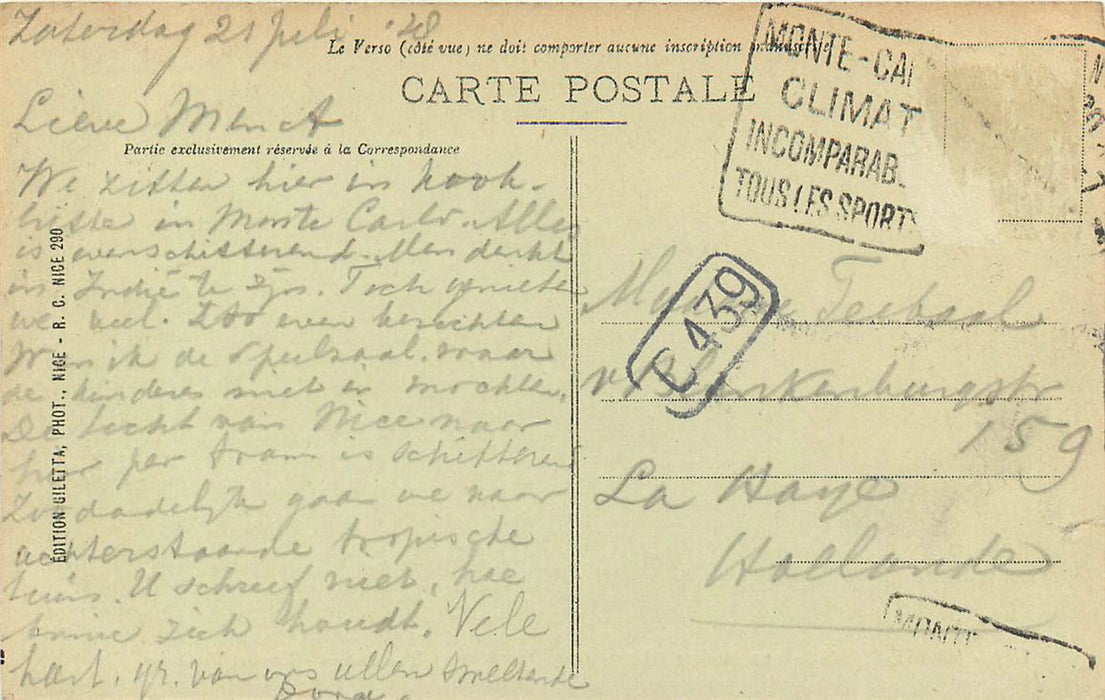 Zaterdag 21 Juli '28
Le Verso (côté vue) ne doit comporter aucune inscription manuscrite
CARTE POSTALE
Lieve M en A
Partie exclusivement réservée à la Correspondance
We zitten hier in hooh-
in Monte Carlo. Alles
is overschitterend. Men denkt
in Indië te zijn. Toch genieten
we veel. Zoo even bezochten
W en ik de speelzaal, waar
de kinderen niet in mochten.
De tocht van Nice naar
hier per tram is schitterend
Zoo dadelijk gaan we naar
achterstaande tropische
tuin. U schreef niet, hoe
zich houdt. Vele
hart. gr. van ons allen
Dora.
ÉDITION GILETTA, PHOT., NICE - R. C. NICE 290
MONTE-CAR
CLIMAT
INCOMPARAB
TOUS LES SPORTS
E439
Teebaal
v. Blankenburgstr
159
La Haye
Hollande
MONTE